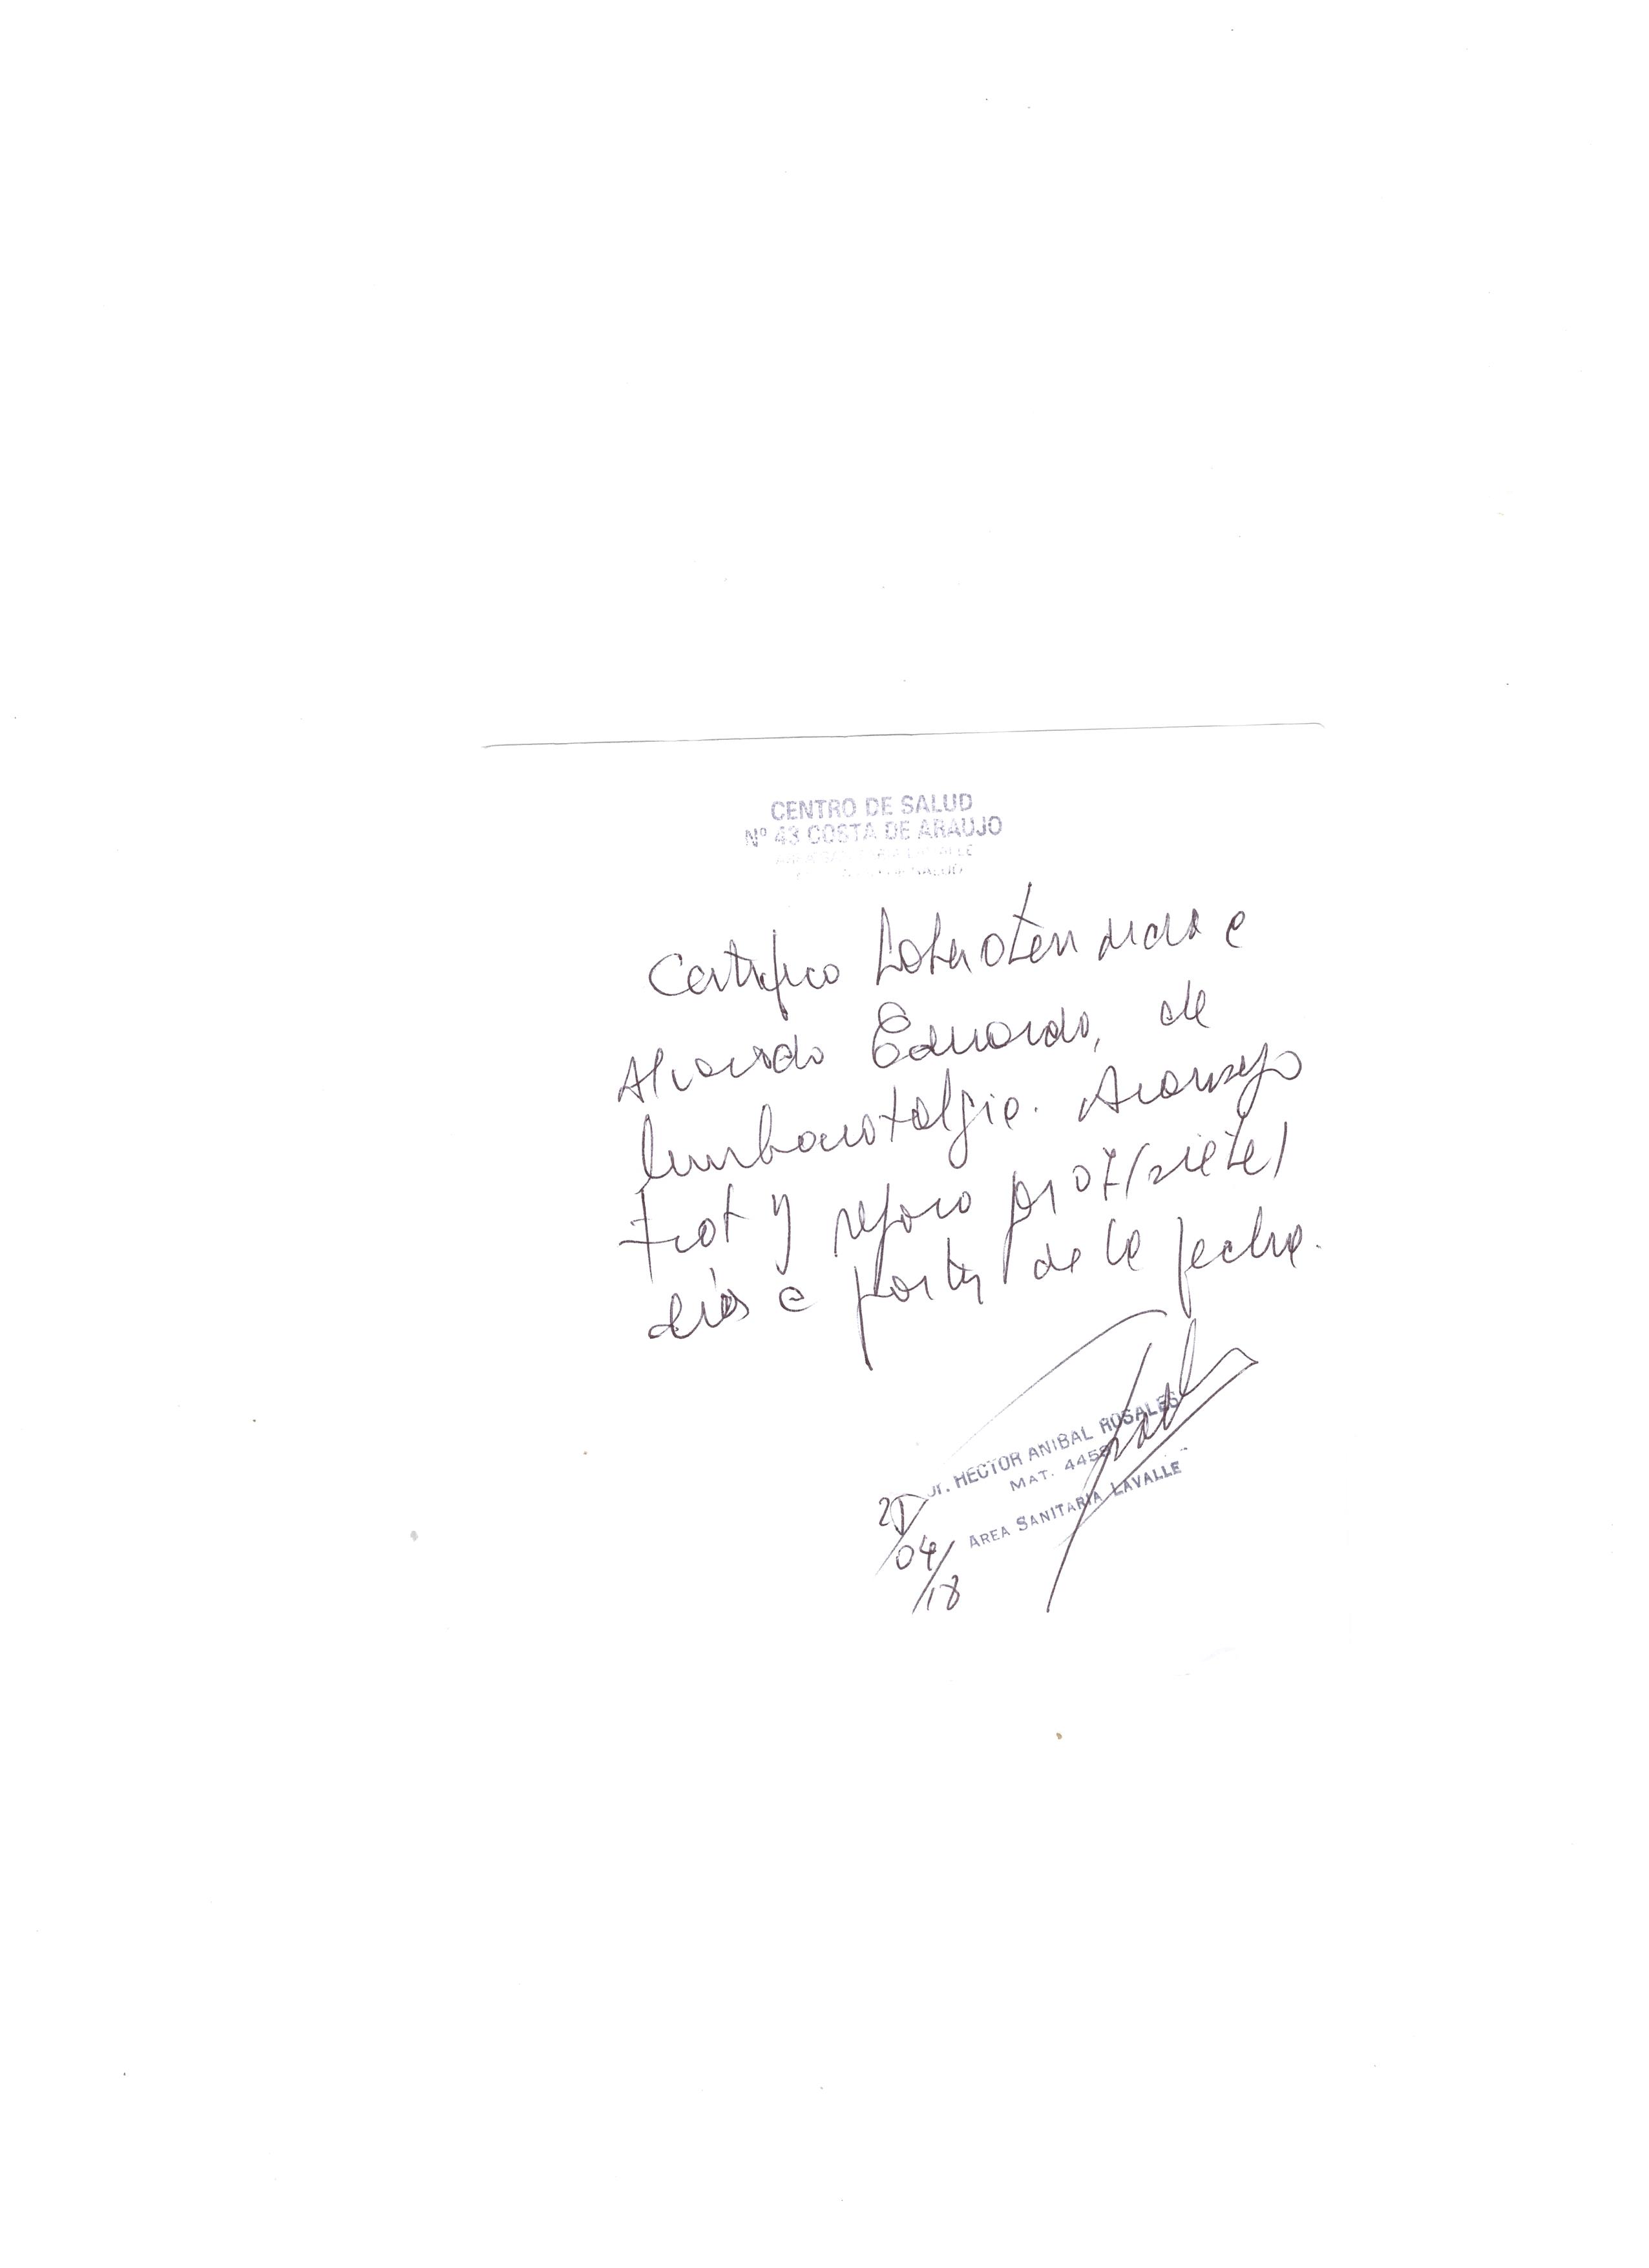 CENTRO DE SALUD
Nº 43 COSTA DE ARAUJO
Certifico haber atendido a
Alvarado Eduardo, de
lumbociatalgia. Aconsejo
trat y reposo por 07 (siete)
días a partir de la fecha.
Dr. HECTOR ANIBAL ROSALES
MAT. 445
AREA SANITARIA LAVALLE
/04/18